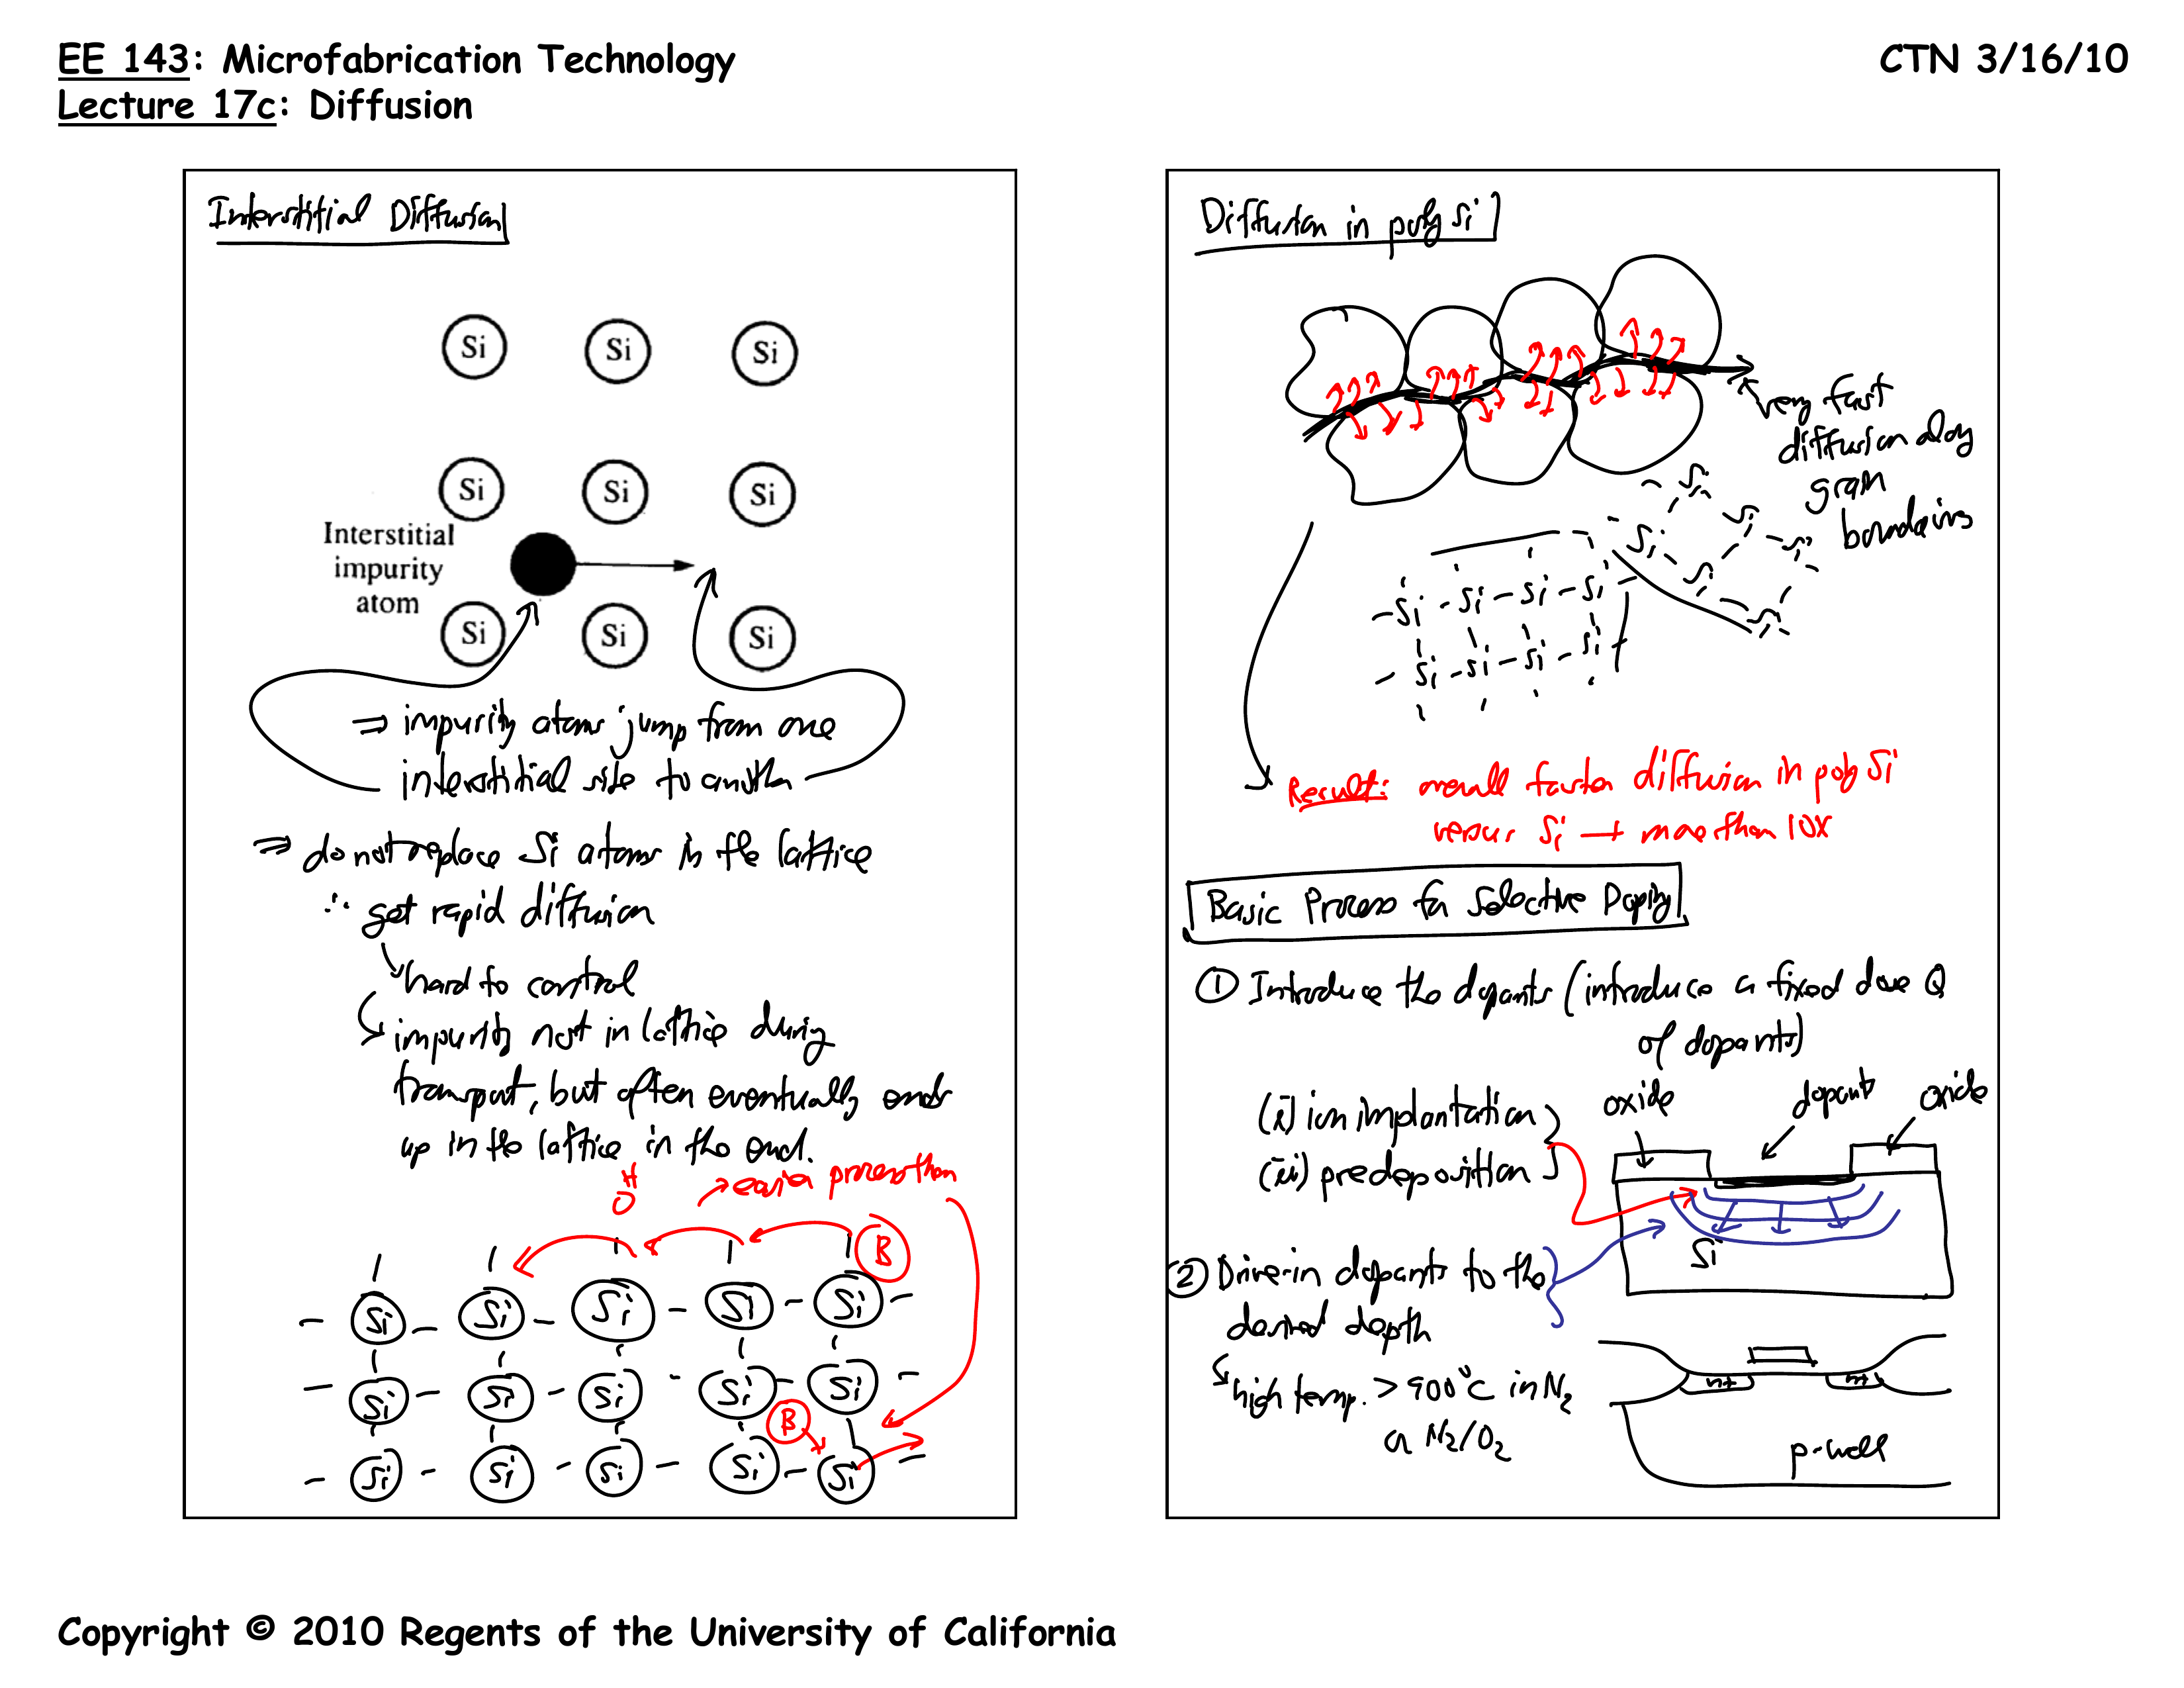 EE 143: Microfabrication Technology
CTN 3/16/10
Lecture 17c: Diffusion
Interstitial Diffusion
Si Si Si
Si Si Si
Interstitial
impurity
atom
Si Si Si
⇒ impurity atoms jump from one
interstitial site to another
⇒ do not replace Si atoms in the lattice
∴ get rapid diffusion
hard to control
impurity not in lattice during
transport, but often eventually ends
up in the lattice in the end.
H
O
easier process than
B
Si Si Si Si Si
Si Si Si Si Si
B
Si Si Si Si Si
Diffusion in poly Si
very fast
diffusion along
grain
boundaries
Si
Si Si Si
Si Si
Si Si Si Si
Si Si Si Si
Result: overall faster diffusion in poly Si
versus Si → more than 10X
Basic Process for Selective Doping
① Introduce the dopants (introduce a fixed dose Q
of dopants)
(i) ion implantation
(ii) predeposition
oxide dopant oxide
Si
② Drive-in dopants to the
desired depth
high temp. > 900°C in N2
or N2/O2
n+ n+
p-well
Copyright © 2010 Regents of the University of California